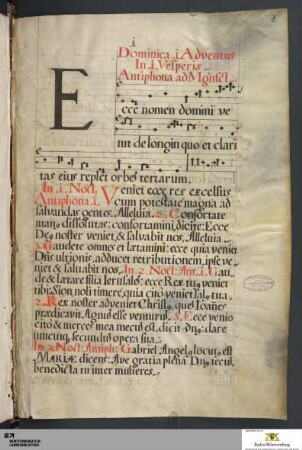 i
Dominica .i. Adventus
In .i. Vesperis
Antiphona ad Mgnfct
E
cce nomen domini ve
nit de longinquo et clari
tas eius replet orbē terrarum.
In .i. Noct. Veniet ecce rex excelsus
Antiphona .i. cum potestate magna ad
salvandas gentes. Alleluia. 2. Confortate
manꝰ dissolutas: confortamini, dicite: Ecce
Deꝰ noster veniet, & salvabit nos, Alleluia.
3. Gaudete omnes et lætamini: ecce quia veniet
Dn̄s ultionis, adducet retributionem, ipse ve-
niet & salvabit nos. In .2. Noct: Ant. i. Gau-
de & lætare filia Ierusalē: ecce Rex tuꝰ veniet
tibi: Sion noli timere, quia cito veniet salꝰ tua.
2. Rex noster adveniet Christꝰ, quē Ioānes
prædicavit Agnū esse venturū. 3. Ecce venio
cito & merces mea mecū est, dicit Dn̄s: dare
unicuiq; secundū opera sua.
In .3. Noct: Antiph: Gabriel Angelꝰ locutꝰ est
MARIÆ dicens: Ave gratia plena: Dn̄s tecū,
benedicta tu inter mulieres.
WÜRTTEMBERGISCHE
LANDESBIBLIOTHEK
Baden-Württemberg